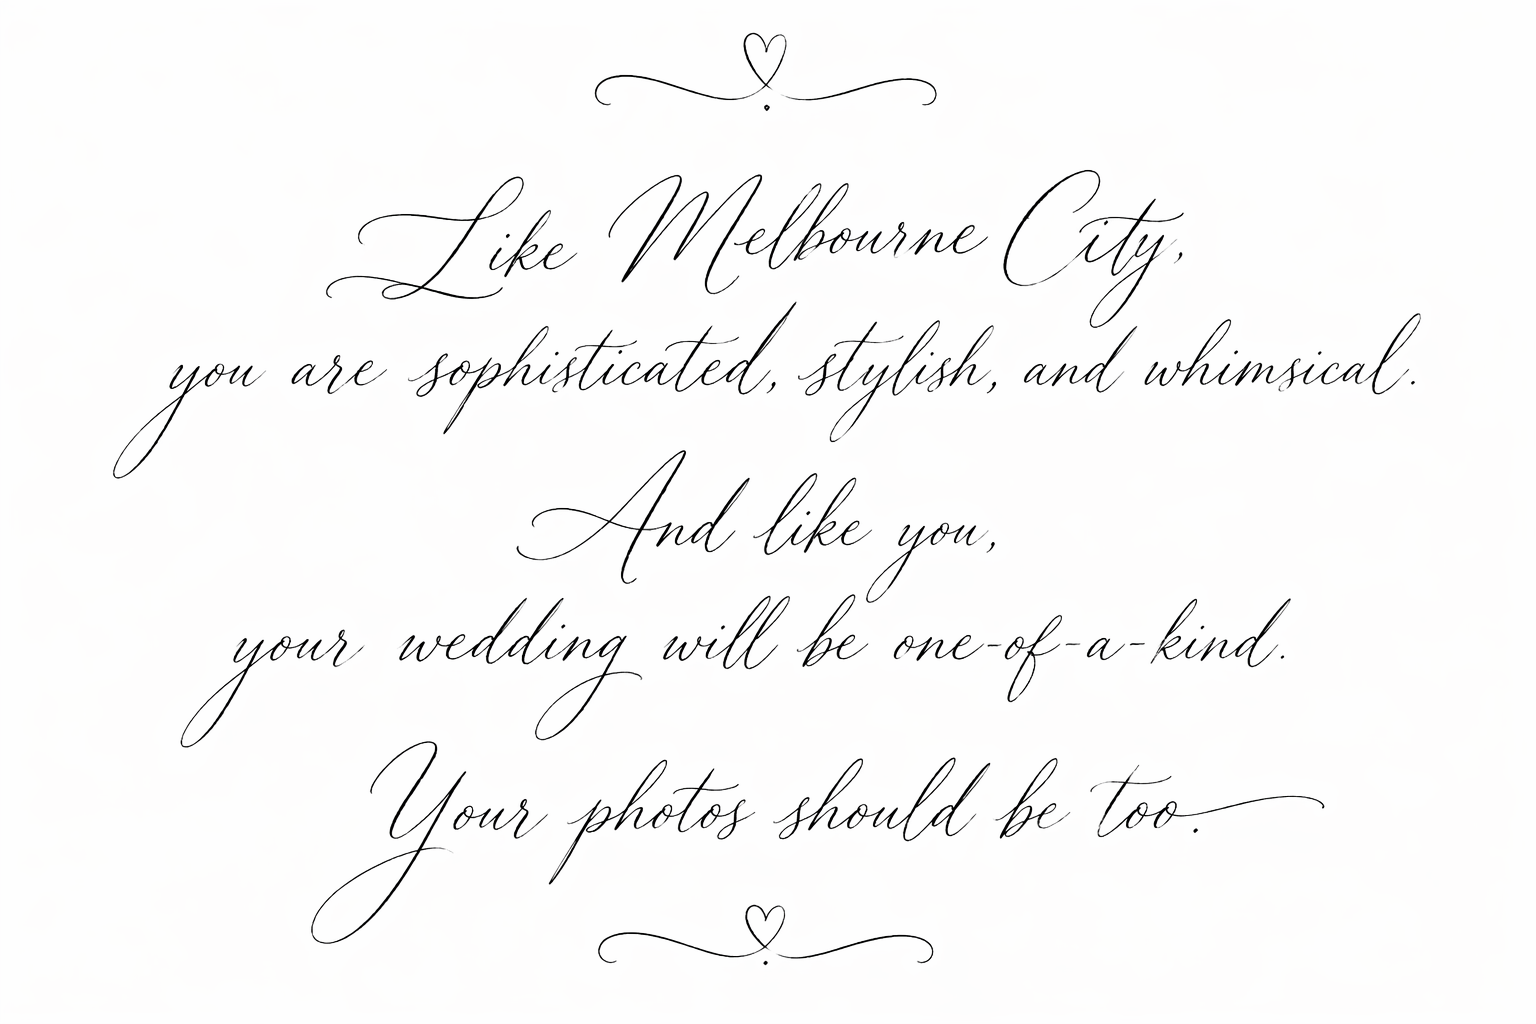 Like Melbourne City,
you are sophisticated, stylish, and whimsical.
And like you,
your wedding will be one-of-a-kind.
Your photos should be too.